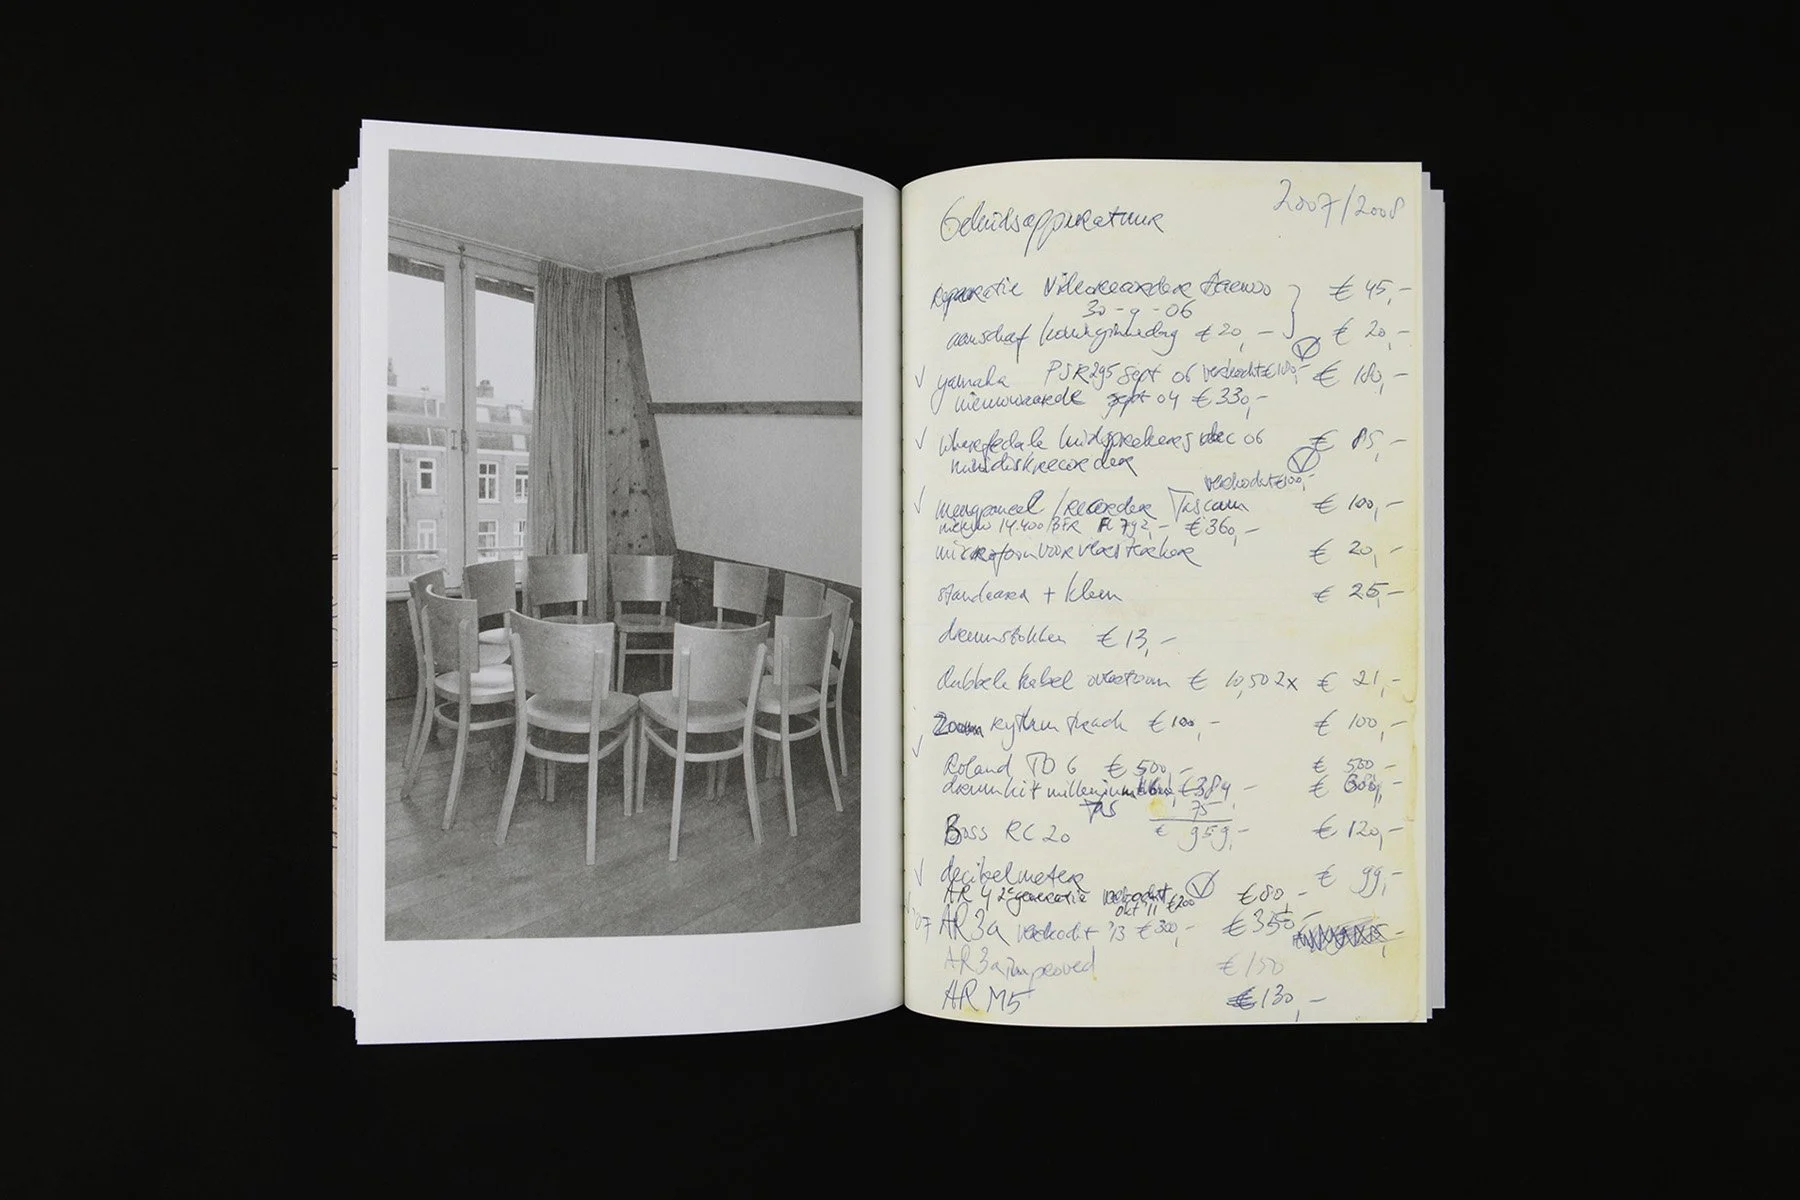 2007/2008
Geluidsapparatuur
reparatie Videorecorder Daewoo € 45,-
30-9-06
aanschaf koninginnedag € 20,- € 20,-
✓ yamaha PSR295 sept 06 verkocht € 180,- € 180,-
nieuwwaarde sept 04 € 330,-
✓ wharfedale luidsprekers dec 06 € 85,-
minidiskrecorder
verkocht €100,-
✓ mengpaneel /recorder Tascam € 100,-
nieuw 14.400/BFR Fl 792,- € 360,-
microfoon voor versterker € 20,-
standaard + klem € 25,-
drumstokken € 13,-
dubbele kabel overtoom € 10,50 2x € 21,-
Zoom rythm track € 100,- € 100,-
✓ Roland TD 6 € 500,- € 500,-
drumkit millenium € 384,-
75
€ 959,-
Boss RC 20 € 120,-
✓ decibelmeter € 99,-
AR 4 2e generatie verkocht €80,-
okt '11 €200
'07 AR 3a verkocht '13 €300,- € 350,-
AR 3a improved € 150
AR M5 € 130,-